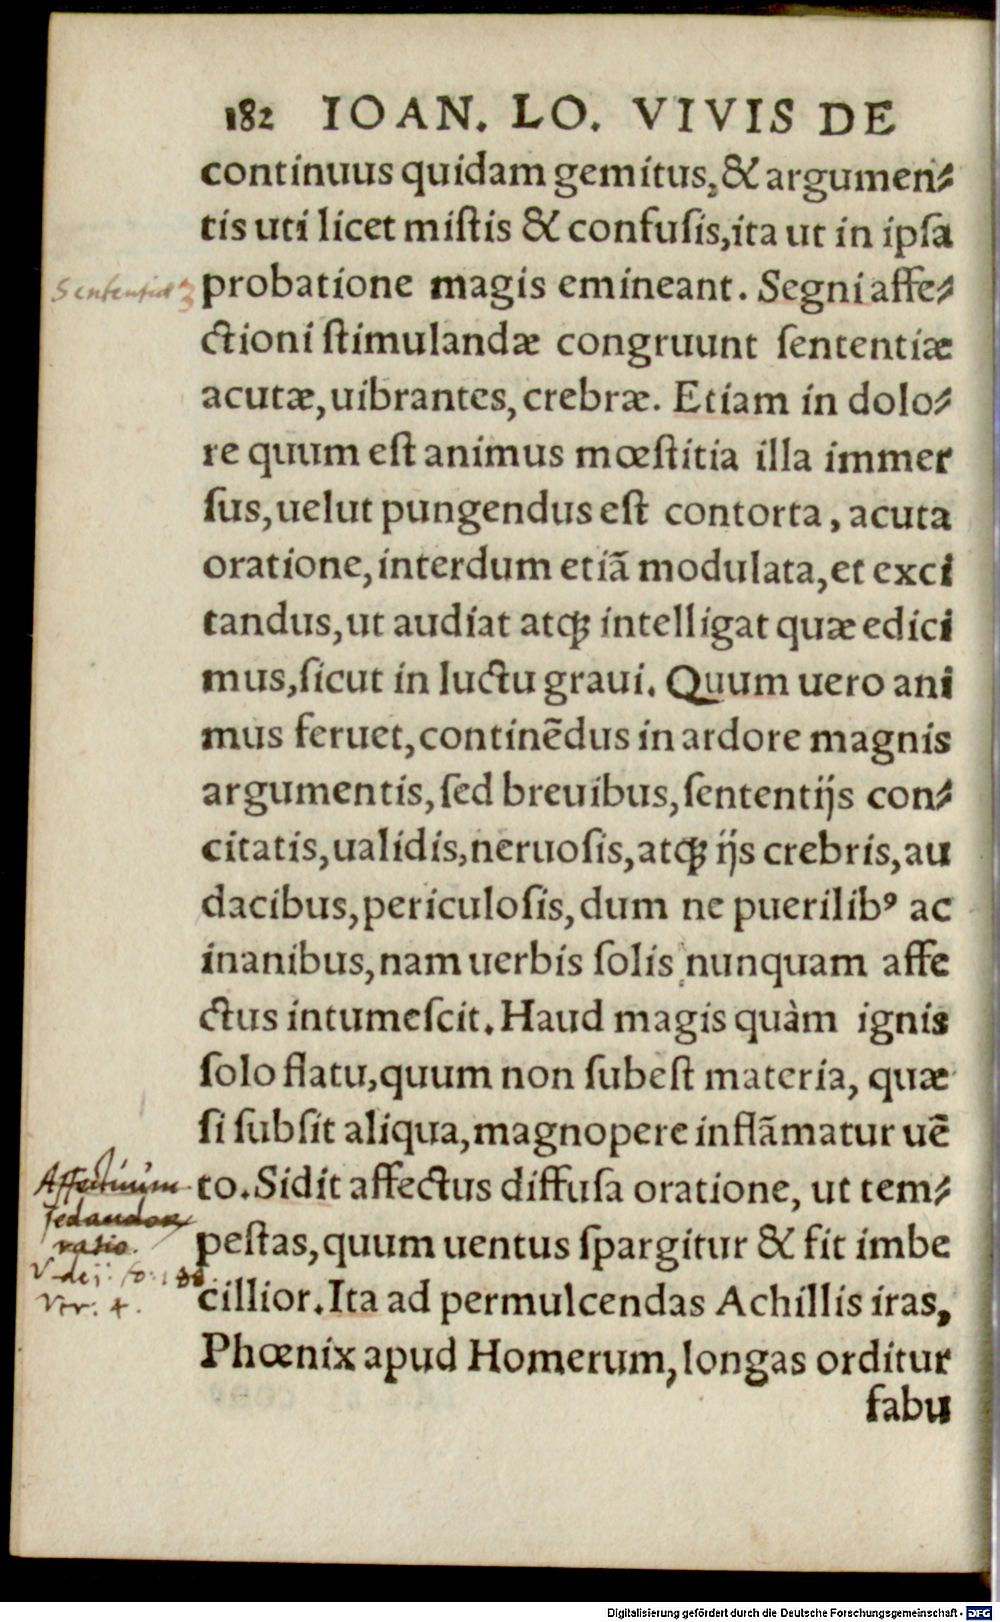 182 IOAN. LO. VIVIS DE
continuus quidam gemitus, & argumen⸗
tis uti licet miſtis & confuſis, ita ut in ipſa
probatione magis emineant. Segni affe⸗
ctioni ſtimulandæ congruunt ſententiæ
acutæ, uibrantes, crebræ. Etiam in dolo⸗
re quum eſt animus mœſtitia illa immer
ſus, uelut pungendus eſt contorta, acuta
oratione, interdum etiã modulata, et exci
tandus, ut audiat atqꝫ intelligat quæ edici
mus, ſicut in luctu graui. Quum uero ani
mus feruet, continẽdus in ardore magnis
argumentis, ſed breuibus, ſententijs con⸗
citatis, ualidis, neruoſis, atqꝫ ijs crebris, au
dacibus, periculoſis, dum ne puerilibꝰ ac
inanibus, nam uerbis ſolis nunquam affe
ctus intumeſcit. Haud magis quàm ignis
ſolo flatu, quum non ſubeſt materia, quæ
ſi ſubſit aliqua, magnopere inflãmatur uẽ
to. Sidit affectus diffuſa oratione, ut tem⸗
peſtas, quum uentus ſpargitur & fit imbe
cillior. Ita ad permulcendas Achillis iras,
Phœnix apud Homerum, longas orditur
fabu
Affectuum
sedandorum
ratio.
Digitalisierung gefördert durch die Deutsche Forschungsgemeinschaft - DFG